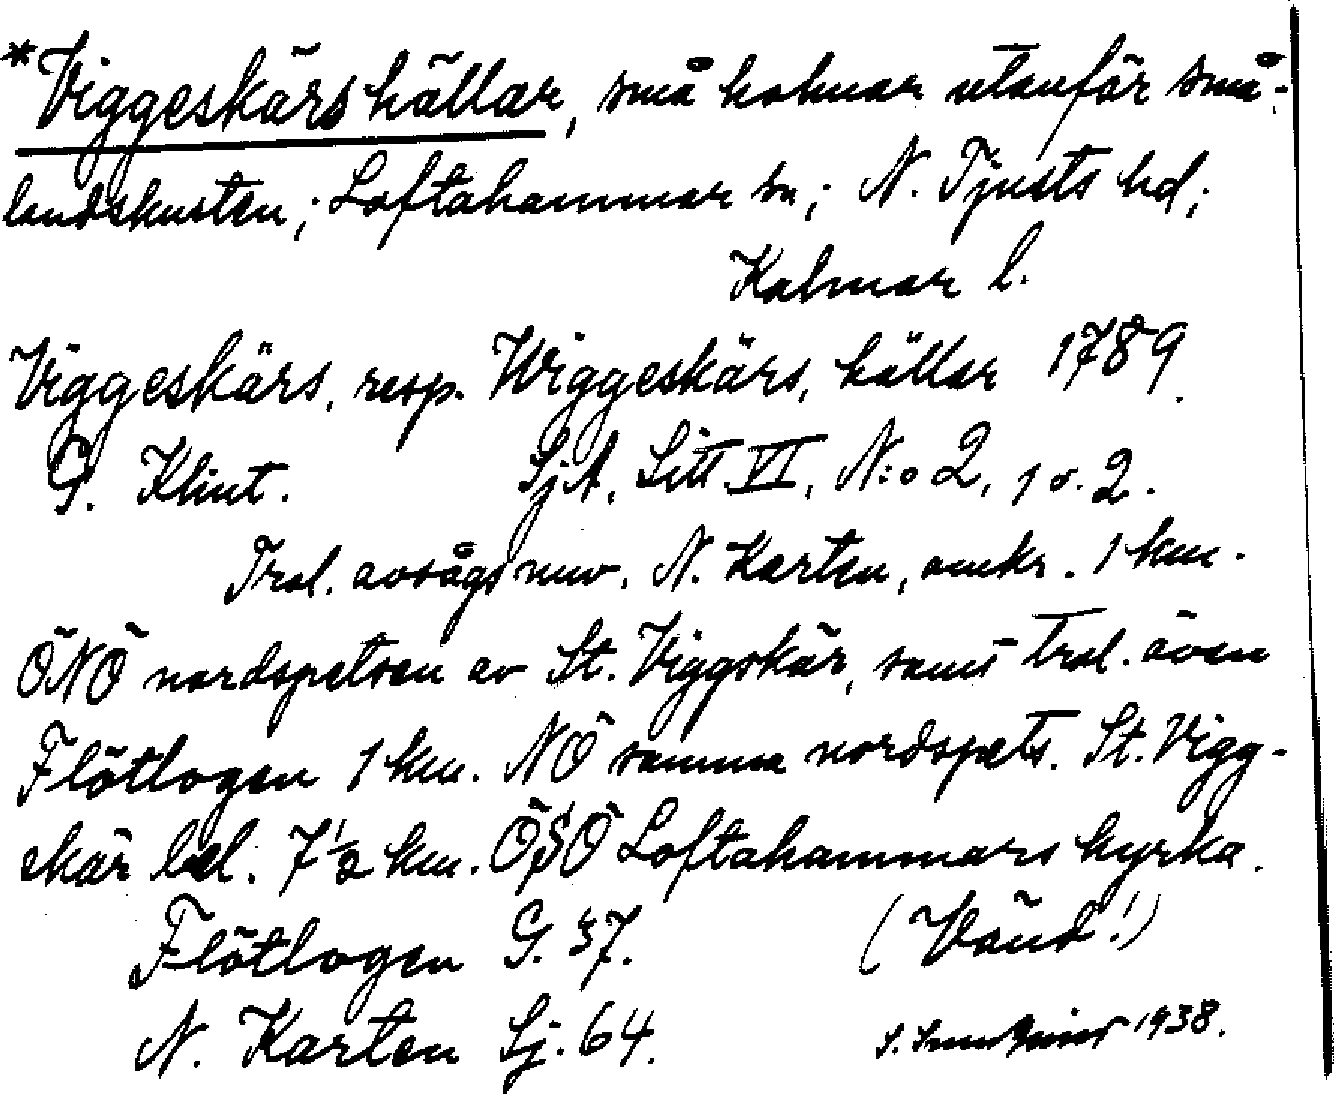 *Viggeskärs hällar, små holmar utanför små-
landskusten; Loftahammar sn; N. Tjusts hd;
Kalmar l.
Viggeskärs, resp. Wiggeskärs, hällar 1789.
G. Klint. SjA, Litt. VI, N:o 2, 1 o. 2.
Trol. avsågs nuv. N. Karten, omkr. 1 km.
ÖNÖ nordspetsen av St. Viggskär, samt trol. även
Flötlogen 1 km. NÖ samma nordspets. St. Vigg-
skär bel. 7 1/2 km. ÖSÖ Loftahammars kyrka.
Flötlogen G. 37. (Vänd!)
N. Karten Sj. 64. 1938.